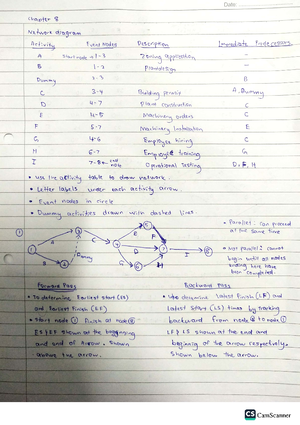 Date
Chapter 8
Network diagram
Activity Event Nodes Description Immediate Predecessors
A Start node → 1-3 Zoning application -
B 1-2 -
Dummy 2-3 B
C 3-4 Building permit A, Dummy
D 4-7 Plant construction C
E 4-5 Machinery orders C
F 5-7 Machinery Installation E
G 4-6 Employee hiring C
H 6-7 Employee training G
I 7-8 → end node Operational testing D, F, H
• use the activity table to draw network
• Letter labels under each activity arrow
• Event nodes in circle
• Dummy activities drawn with dashed lines
• Parallel: can proceed
at the same time
• Not parallel: cannot
begin until all nodes
ending here have
been completed
1
1 A 3 C 4 E 5 F
B 2 Dummy D 7 I 8
G 6 H
Forward Pass
• To determine Earliest Start (ES)
and Earliest Finish (EF)
• Start node 1 finish at node 8
ES & EF shown at the
and end of arrow, shown
above the arrow.
Backward Pass
• determine Latest Finish (LF) and
Latest Start (LS) times by tracking
backward from node 8 to node 1
LF & LS shown at the end and
beginning of the arrow respectively.
Shown below the arrow.
CS CamScanner